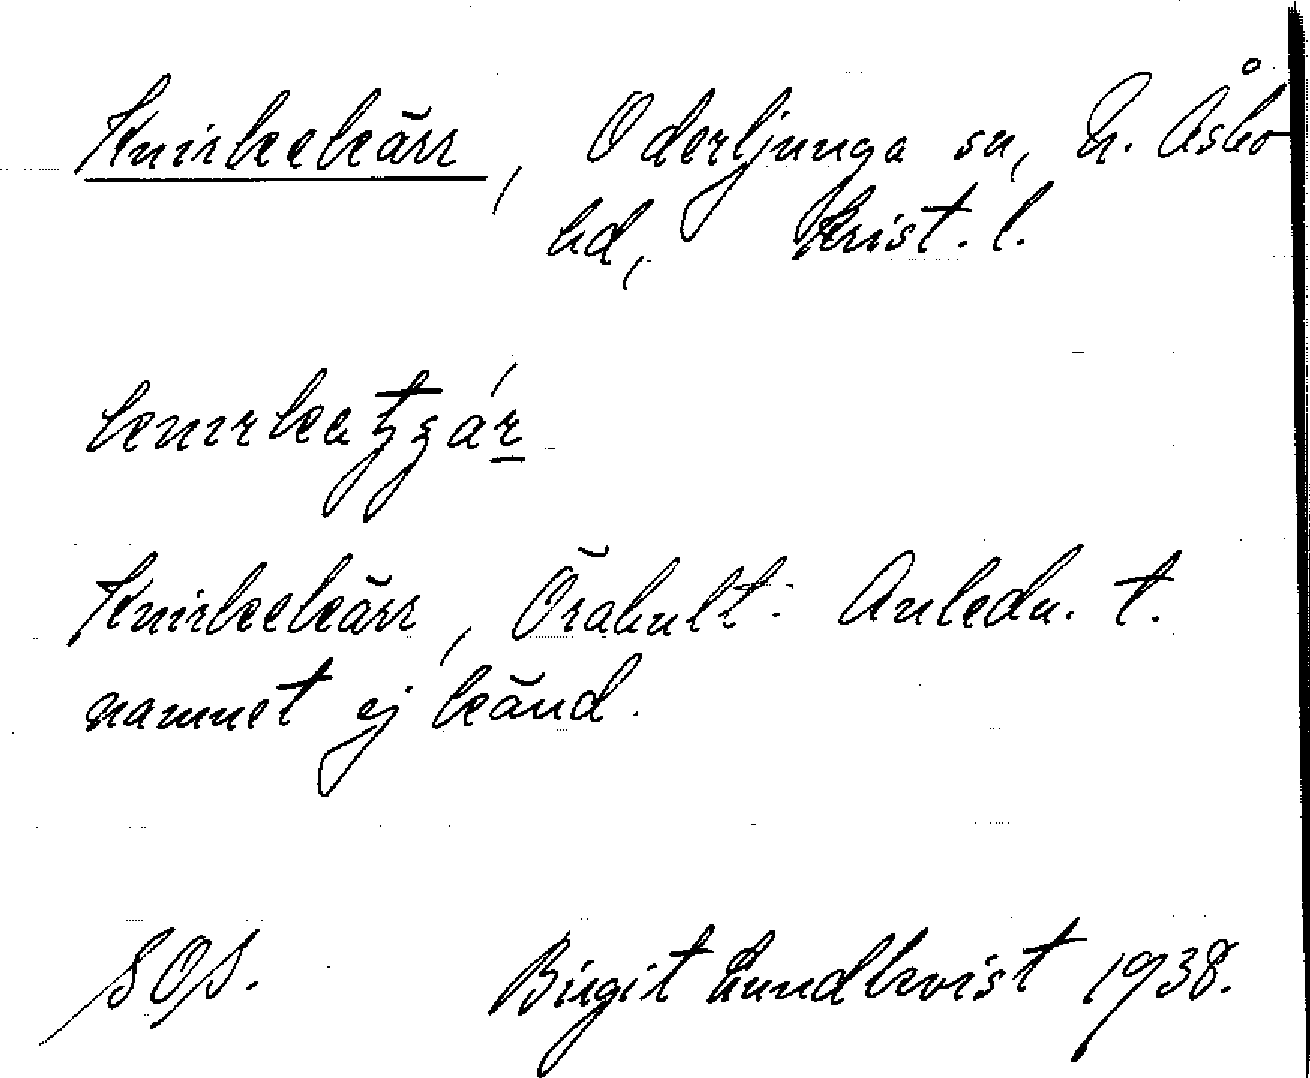 Knirkekärr, Oderljunga sn, N. Åsbo
hd, Krist. l.
Knirkekärr, Örahult. Anledn. t.
namnet ej känd.
SOS. Birgit Lundkvist 1938.